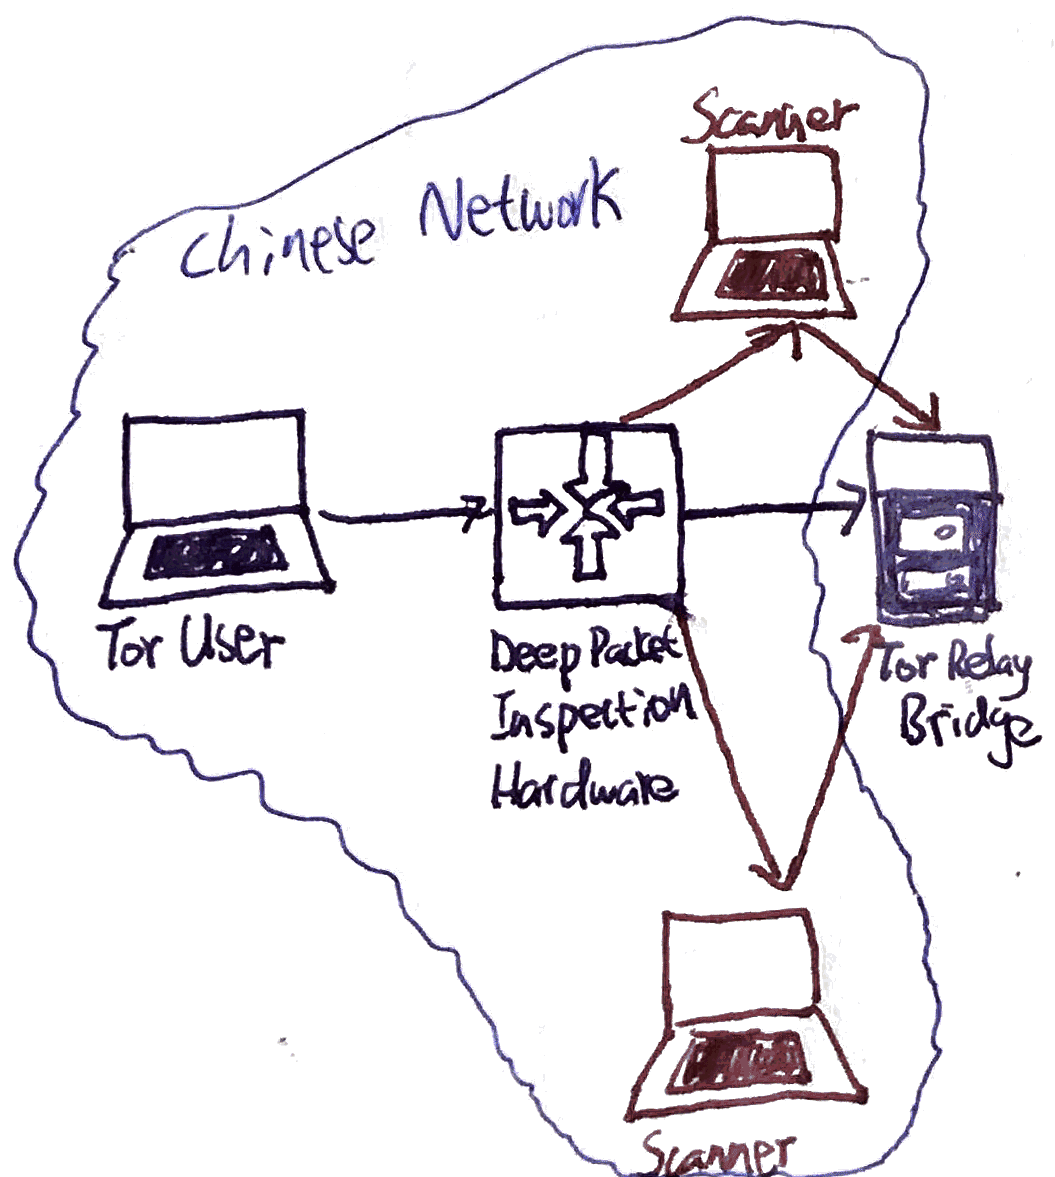 Scanner
Chinese Network
Tor User
Deep Packet
Inspection
Hardware
Tor Relay
Bridge
Scanner